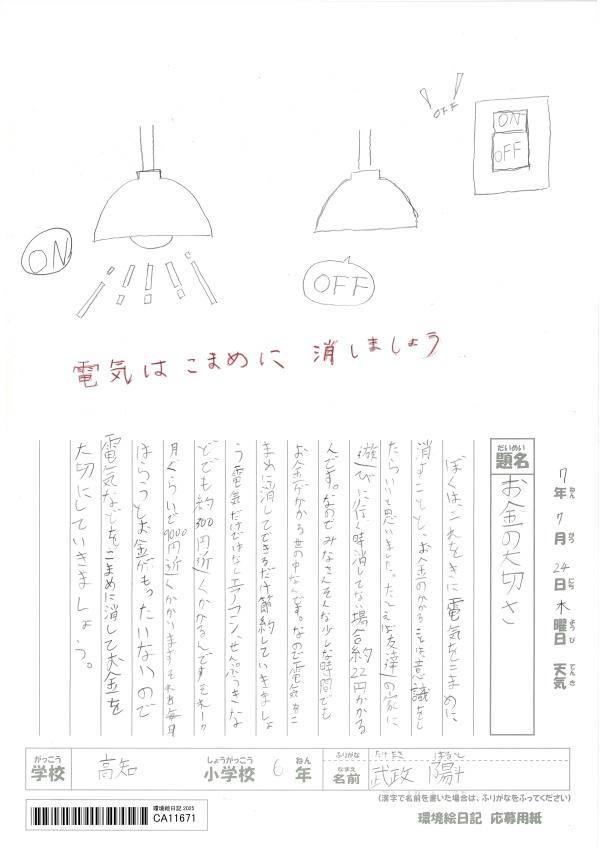 ON
OFF
OFF
ON
OFF
電気はこまめに 消しましょう
だいめい
題名
お金の大切さ
7年7月24日木曜日 天気
ねん がつ にち ようび てんき
ぼくは、これをきに電気をこまめに
消すことと、お金のかかることは、意識をし
たらいいと思いました。たとえば友達の家に
遊びに行く時消してない場合約22円かかる
んです。なのでみなさんそんな少しな時間でも
お金がかかる世の中なんです。なので電気をこ
まめに消してできるだけ節約していきましょ
う電気だけではなくエアコン、せんぷうきな
どでも約300円近くかかるんですそれ一か
月ぐらいで9000円近くかかりますそれを毎月
はらうとお金がもったいないので
電気などをこまめに消してお金を
大切にしていきましょう。
がっこう しょうがっこう ねん ふりがな たけ まさ
学校 高知 小学校 6年
なまえ
名前 武政 陽
(漢字で名前を書いた場合は、ふりがなをふってください)
環境絵日記 2025
CA11671
環境絵日記 応募用紙